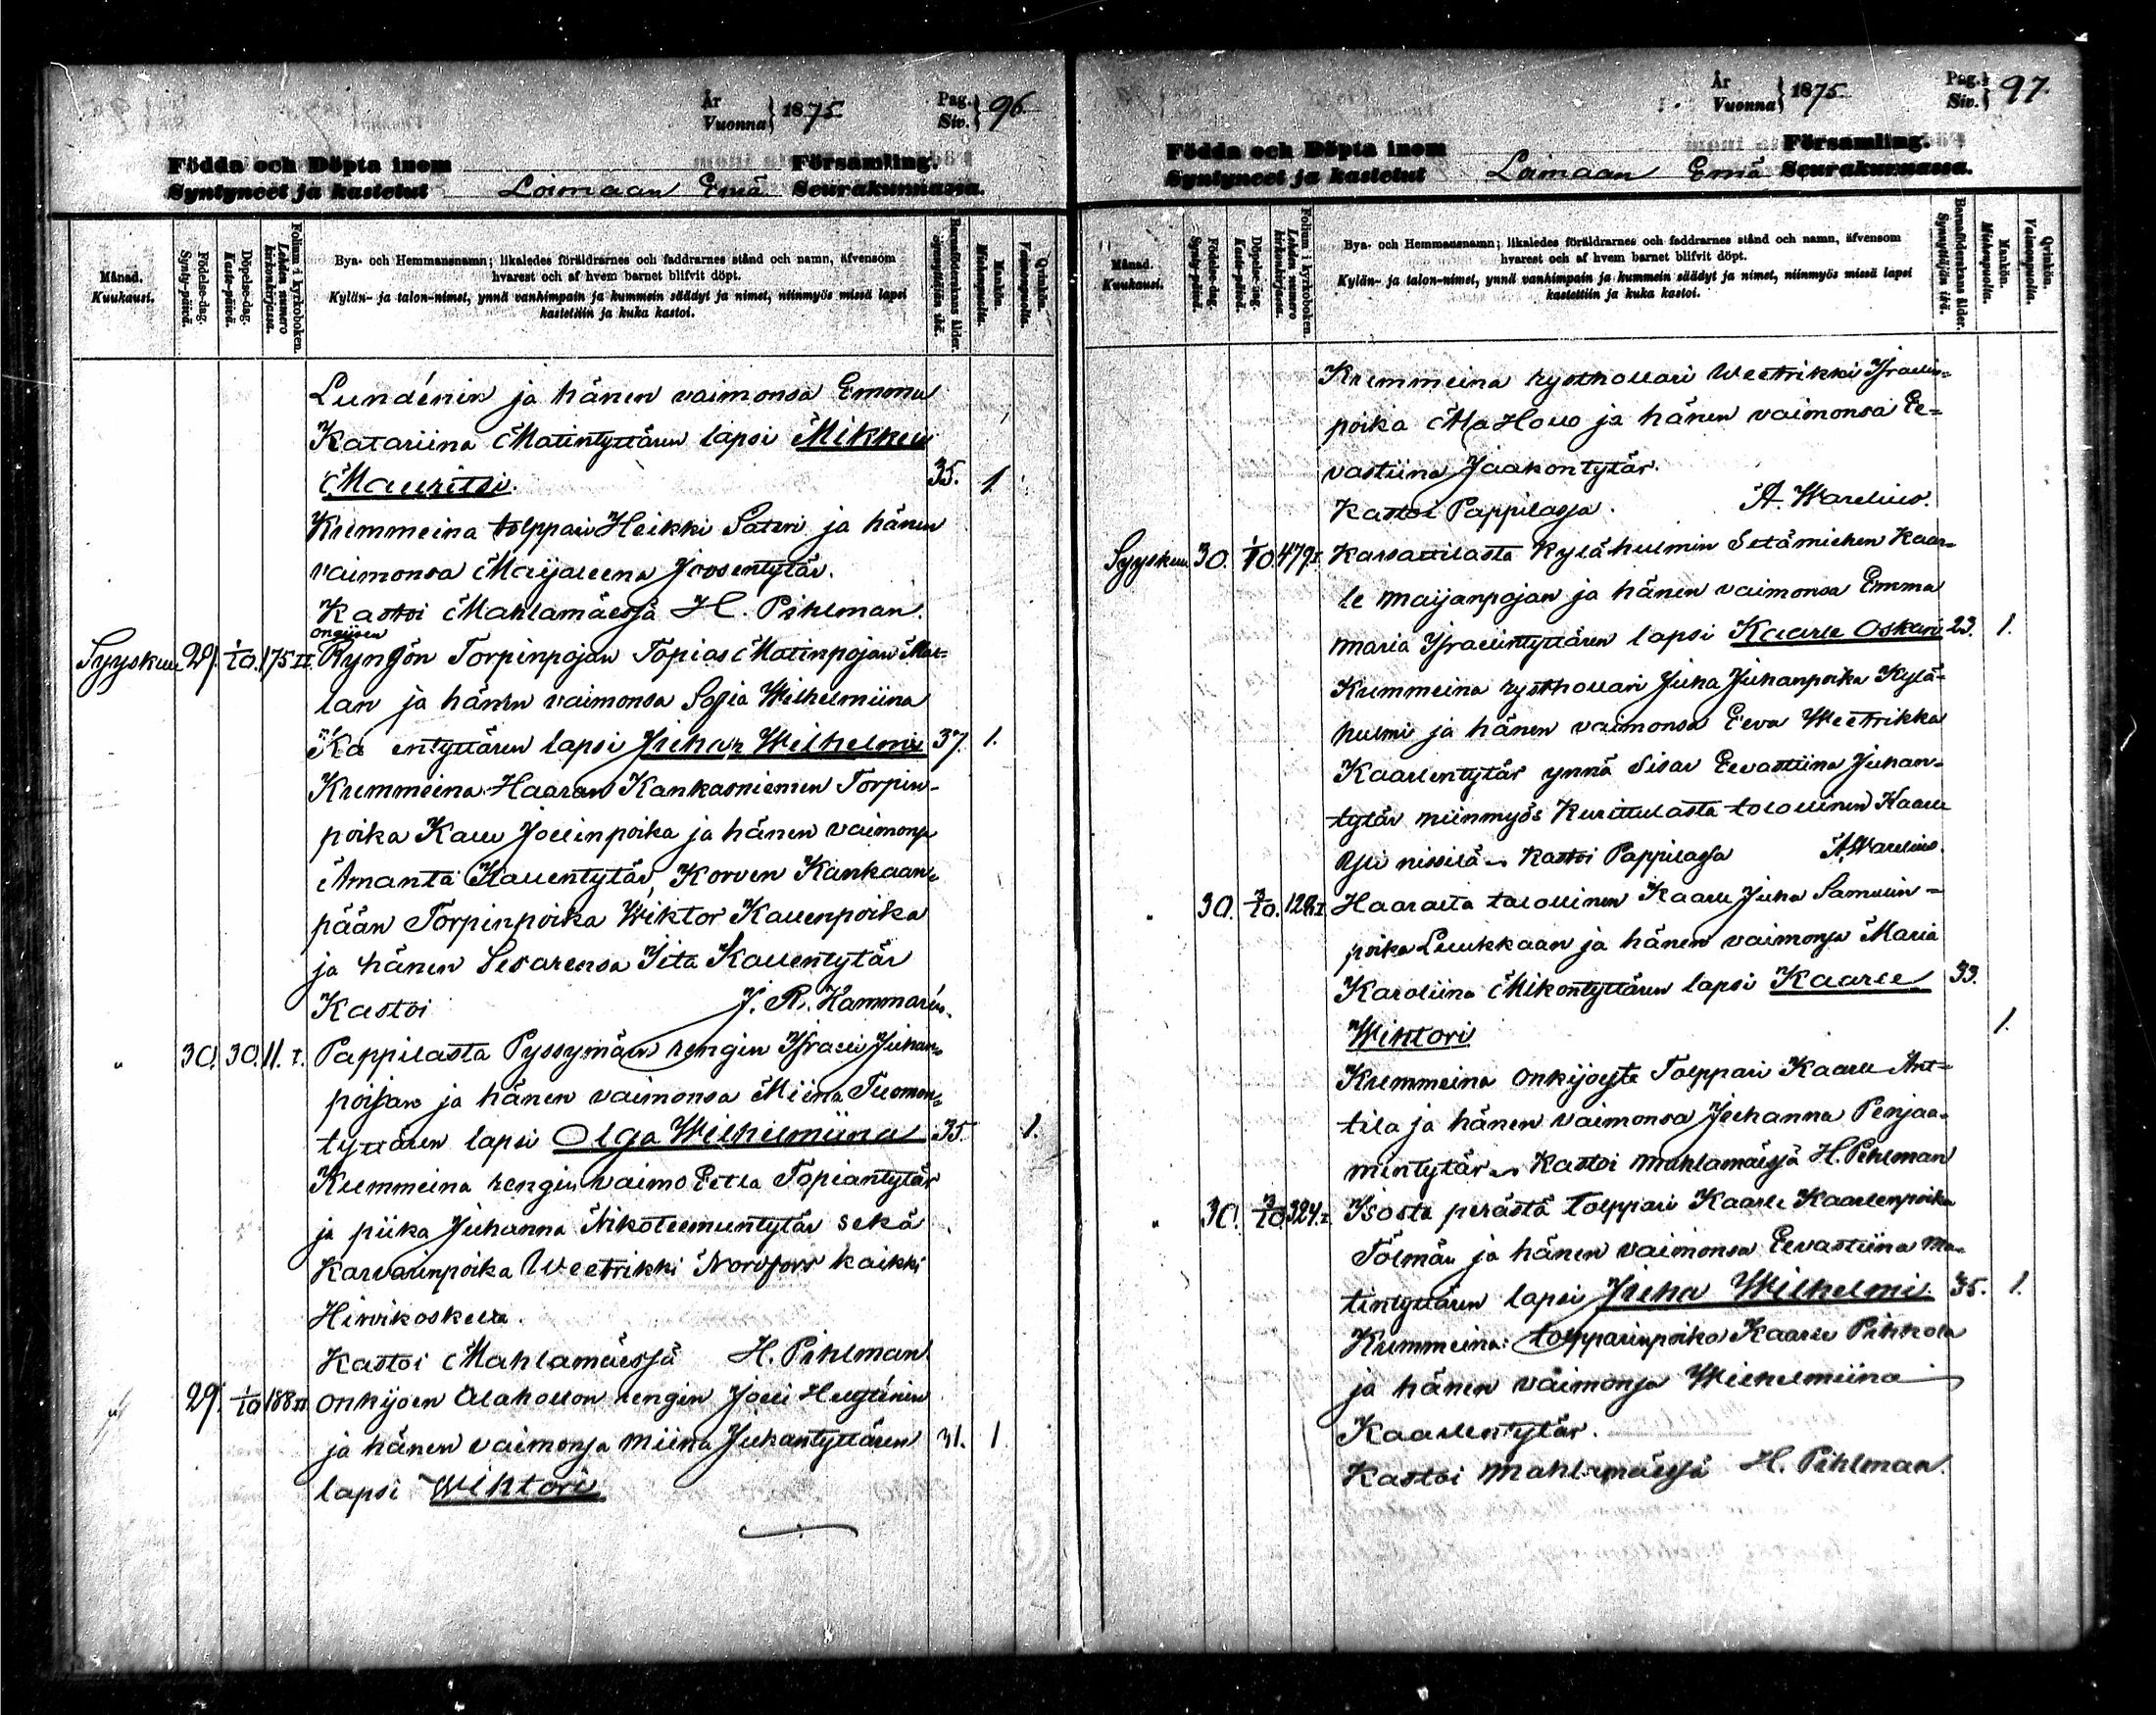 År
Vuonna } 1875
Pag.
Siv. } 96
Födda och Döpta inom Församling.
Syntyneet ja kastetut Loimaan Emä Seurakunnassa.
Månad.
Kuukausi.
Födelse-dag.
Synty-päivä.
Döpelse-dag.
Kaste-päivä.
Folium i kyrkoboken.
Lehden numero
kirkonkirjassa.
Bya- och Hemmansnamn; likaledes föräldrarnes och faddrarnes stånd och namn, äfvensom
hvarest och af hvem barnet blifvit döpt.
Kylän- ja talon-nimet, ynnä vanhimpain ja kummein säädyt ja nimet, niinmyös missä lapsi
kastettiin ja kuka kastoi.
Barnaföderskans ålder.
Synnyttäjän ikä.
Mankön.
Miehenpuolta.
Qvinkön.
Vaimonpuolta.
Lundénin ja hänen vaimonsa Emma
Katariina Matintyttären lapsi Mikkeli
Mauritsi. 35. 1
Kummeina tolppari Heikki Sateri ja hänen
vaimonsa Maijaleena Joosentytär.
Kastoi Mahlamäessä H. Pihlman.
Syyskuu 29. 1/10. 175 II. Ryngön Torpinpojan Topias Matinpojan Mat-
lan ja hänen vaimonsa Sofia Wilhelmiina
Ka entyttären lapsi Juhan Wilhelmi 37. 1.
Kummeina Haaran Kankasniemen Torpin-
poika Kalle Joelinpoika ja hänen vaimonsa
Amanta Kallentytär, Korven Kankaan-
pään Torpinpoika Wiktor Kallenpoika
ja hänen Sisarensa Iita Kallentytär
Kastoi J. R. Hammarén.
" 30. 30. 11. I. Pappilasta Pyssymäen rengin Israeli Juhan-
poijan ja hänen vaimonsa Miina Tuomon-
tyttären lapsi Olga Wilhelmiina 35 1.
Kummeina rengin vaimo Eetla Topiantytär
ja piika Juhanna Nikoteemuntytär sekä
Karvarinpoika Weetrikki Norrfors kaikki
Hirvikoskella.
Kastoi Mahlamäessä H. Pihlman
29. 1/10 188 II Onkijoen Alahollon rengin Joeli Helgénin
ja hänen vaimonsa Miina Juhantyttären 31. 1
lapsi Wihtori
År
Vuonna } 1875
Pag.
Siv. } 97.
Födda och Döpta inom Församling.
Syntyneet ja kastetut Loimaan Emä Seurakunnassa.
Månad.
Kuukausi.
Födelse-dag.
Synty-päivä.
Döpelse-dag.
Kaste-päivä.
Folium i kyrkoboken.
Lehden numero
kirkonkirjassa.
Bya- och Hemmansnamn; likaledes föräldrarnes och faddrarnes stånd och namn, äfvensom
hvarest och af hvem barnet blifvit döpt.
Kylän- ja talon-nimet, ynnä vanhimpain ja kummein säädyt ja nimet, niinmyös missä lapsi
kastettiin ja kuka kastoi.
Barnaföderskans ålder.
Synnyttäjän ikä.
Mankön.
Miehenpuolta.
Qvinkön.
Vaimonpuolta.
Kummeina rysthollari Weetrikki Israelin-
poika Ala Hollo ja hänen vaimonsa Ee-
vastiina Jaakontytär.
Kastoi Pappilassa. A. Warelius.
Syyskuu 30. 1/10. 479 I. Karsattilasta Kylähulmin Setämiehen Kaar-
le Maijanpojan ja hänen vaimonsa Emma
Maria Israelintyttären lapsi Kaarle Oskari 23. 1.
Kummeina rysthollari Juha Juhanpoika Kylä-
hulmi ja hänen vaimonsa Eeva Weetrikka
Kaarlentytär ynnä Sisar Eevastiina Juhan-
tytär niinmyös Kurittulasta talollinen Kaarle
Yli nissilä. Kastoi Pappilassa A. Warelius.
" 30. 3/10. 128 I. Haarasta talollinen Kaarle Juha Samulin-
poika Luukkaan ja hänen vaimonsa Maria
Karoliina Mikontyttären lapsi Kaarle 33.
Wihtori 1.
Kummeina Onkijoesta Tolppari Kaarle Ant-
tila ja hänen vaimonsa Juhanna Penjaa-
mintytär. Kastoi Mahlamäessä H. Pihlman
" 30. 3/10. 324. I Isosta perästä tolppari Kaarle Kaarlenpoika
Tölmän ja hänen vaimonsa Eevastiina Ma-
tintyttären lapsi Juha Wilhelmi. 35. 1.
Kummeina: tolpparinpoika Kaarle Pihkola
ja hänen vaimonsa Wilhelmiina
Kaarlentytär.
Kastoi Mahlamäessä H. Pihlman.